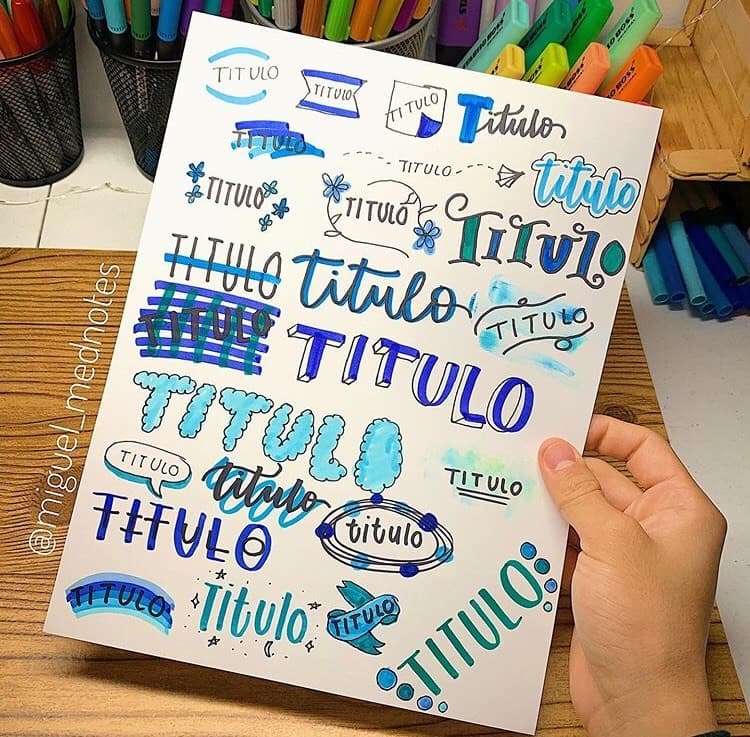 TITULO
TITULO
TITULO
Titulo
TITULO
TITULO
titulo
TITULO
TITULO
TITULO
TITULO
titulo
TITULO
TITULO
TITULO
TITULO
TITULO
titulo
TITULO
TITULO
titulo
TITULO
Titulo
TITULO
TITULO
@miguel_mednotes
STABILO BOSS
STABILO BOSS